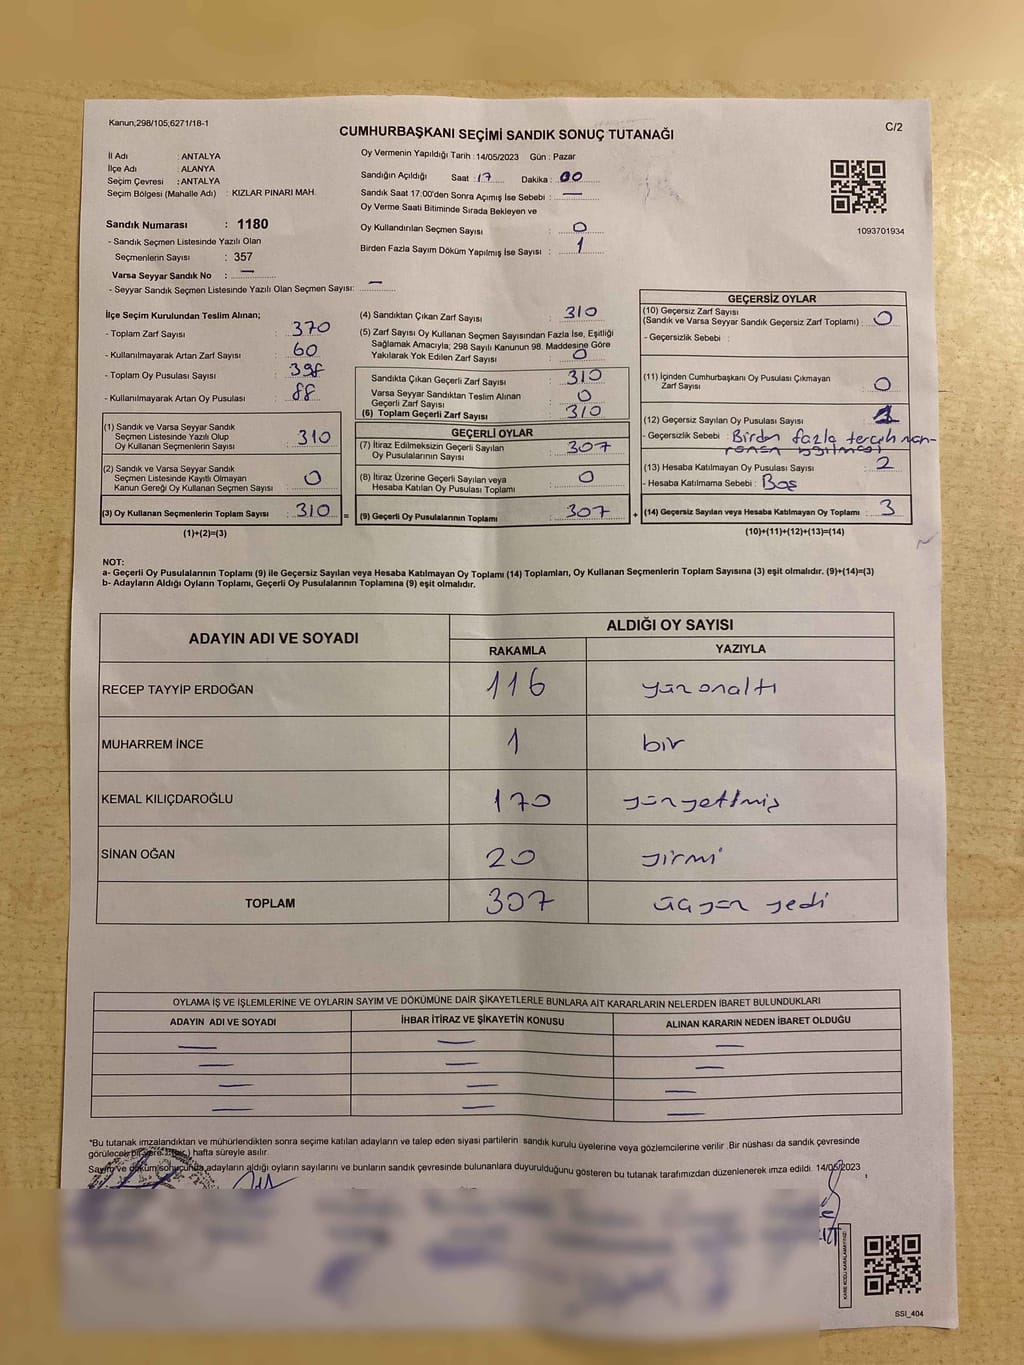 Kanun,298/105,6271/18-1
CUMHURBAŞKANI SEÇİMİ SANDIK SONUÇ TUTANAĞI
C/2
İl Adı : ANTALYA
İlçe Adı : ALANYA
Seçim Çevresi : ANTALYA
Seçim Bölgesi (Mahalle Adı) : KIZLAR PINARI MAH.
Sandık Numarası : 1180
- Sandık Seçmen Listesinde Yazılı Olan
Seçmenlerin Sayısı : 357
Varsa Seyyar Sandık No : —
- Seyyar Sandık Seçmen Listesinde Yazılı Olan Seçmen Sayısı: —
Oy Vermenin Yapıldığı Tarih : 14/05/2023 Gün : Pazar
Sandığın Açıldığı Saat : 17 Dakika : 00
Sandık Saat 17:00'den Sonra Açımış İse Sebebi : —
Oy Verme Saati Bitiminde Sırada Bekleyen ve
Oy Kullandırılan Seçmen Sayısı : 0
Birden Fazla Sayım Döküm Yapılmış İse Sayısı : 1
1093701934
İlçe Seçim Kurulundan Teslim Alınan;
- Toplam Zarf Sayısı : 370
- Kullanılmayarak Artan Zarf Sayısı : 60
- Toplam Oy Pusulası Sayısı : 398
- Kullanılmayarak Artan Oy Pusulası : 88
(1) Sandık ve Varsa Seyyar Sandık
Seçmen Listesinde Yazılı Olup
Oy Kullanan Seçmenlerin Sayısı : 310
(2) Sandık ve Varsa Seyyar Sandık
Seçmen Listesinde Kayıtlı Olmayan
Kanun Gereği Oy Kullanan Seçmen Sayısı : 0
(3) Oy Kullanan Seçmenlerin Toplam Sayısı : 310 =
(1)+(2)=(3)
(4) Sandıktan Çıkan Zarf Sayısı : 310
(5) Zarf Sayısı Oy Kullanan Seçmen Sayısından Fazla İse, Eşitliği
Sağlamak Amacıyla; 298 Sayılı Kanunun 98. Maddesine Göre
Yakılarak Yok Edilen Zarf Sayısı : 0
Sandıkta Çıkan Geçerli Zarf Sayısı : 310
Varsa Seyyar Sandıktan Teslim Alınan
Geçerli Zarf Sayısı : 0
(6) Toplam Geçerli Zarf Sayısı : 310
GEÇERLİ OYLAR
(7) İtiraz Edilmeksizin Geçerli Sayılan
Oy Pusulalarının Sayısı : 307
(8) İtiraz Üzerine Geçerli Sayılan veya
Hesaba Katılan Oy Pusulası Toplamı : 0
(9) Geçerli Oy Pusulalarının Toplamı : 307 +
GEÇERSİZ OYLAR
(10) Geçersiz Zarf Sayısı
(Sandık ve Varsa Seyyar Sandık Geçersiz Zarf Toplamı) : 0
- Geçersizlik Sebebi :
(11) İçinden Cumhurbaşkanı Oy Pusulası Çıkmayan
Zarf Sayısı : 0
(12) Geçersiz Sayılan Oy Pusulası Sayısı : 1
- Geçersizlik Sebebi : Birden fazla tercih
(13) Hesaba Katılmayan Oy Pusulası Sayısı : 2
- Hesaba Katılmama Sebebi : Boş
(14) Geçersiz Sayılan veya Hesaba Katılmayan Oy Toplamı : 3
(10)+(11)+(12)+(13)=(14)
NOT:
a- Geçerli Oy Pusulalarının Toplamı (9) ile Geçersiz Sayılan veya Hesaba Katılmayan Oy Toplamı (14) Toplamları, Oy Kullanan Seçmenlerin Toplam Sayısına (3) eşit olmalıdır. (9)+(14)=(3)
b- Adayların Aldığı Oyların Toplamı, Geçerli Oy Pusulalarının Toplamına (9) eşit olmalıdır.
ADAYIN ADI VE SOYADI ALDIĞI OY SAYISI
RAKAMLA YAZIYLA
RECEP TAYYİP ERDOĞAN 116 yüzonaltı
MUHARREM İNCE 1 bir
KEMAL KILIÇDAROĞLU 170 yüzyetmiş
SİNAN OĞAN 20 yirmi
TOPLAM 307 üçyüz yedi
OYLAMA İŞ VE İŞLEMLERİNE VE OYLARIN SAYIM VE DÖKÜMÜNE DAİR ŞİKAYETLERLE BUNLARA AİT KARARLARIN NELERDEN İBARET BULUNDUKLARI
ADAYIN ADI VE SOYADI İHBAR İTİRAZ VE ŞİKAYETİN KONUSU ALINAN KARARIN NEDEN İBARET OLDUĞU
— — —
— — —
— — —
— — —
*Bu tutanak imzalandıktan ve mühürlendikten sonra seçime katılan adayların ve talep eden siyasi partilerin sandık kurulu üyelerine veya gözlemcilerine verilir .Bir nüshası da sandık çevresinde
görülecek bir yere hafta süreyle asılır.
Sayım ve döküm sonucunda,adayların aldığı oyların sayılarını ve bunların sandık çevresinde bulunanlara duyurulduğunu gösteren bu tutanak tarafımızdan düzenlenerek imza edildi. 14/05/2023
KARE KODU KARALAMAYINIZ!
SSI_404